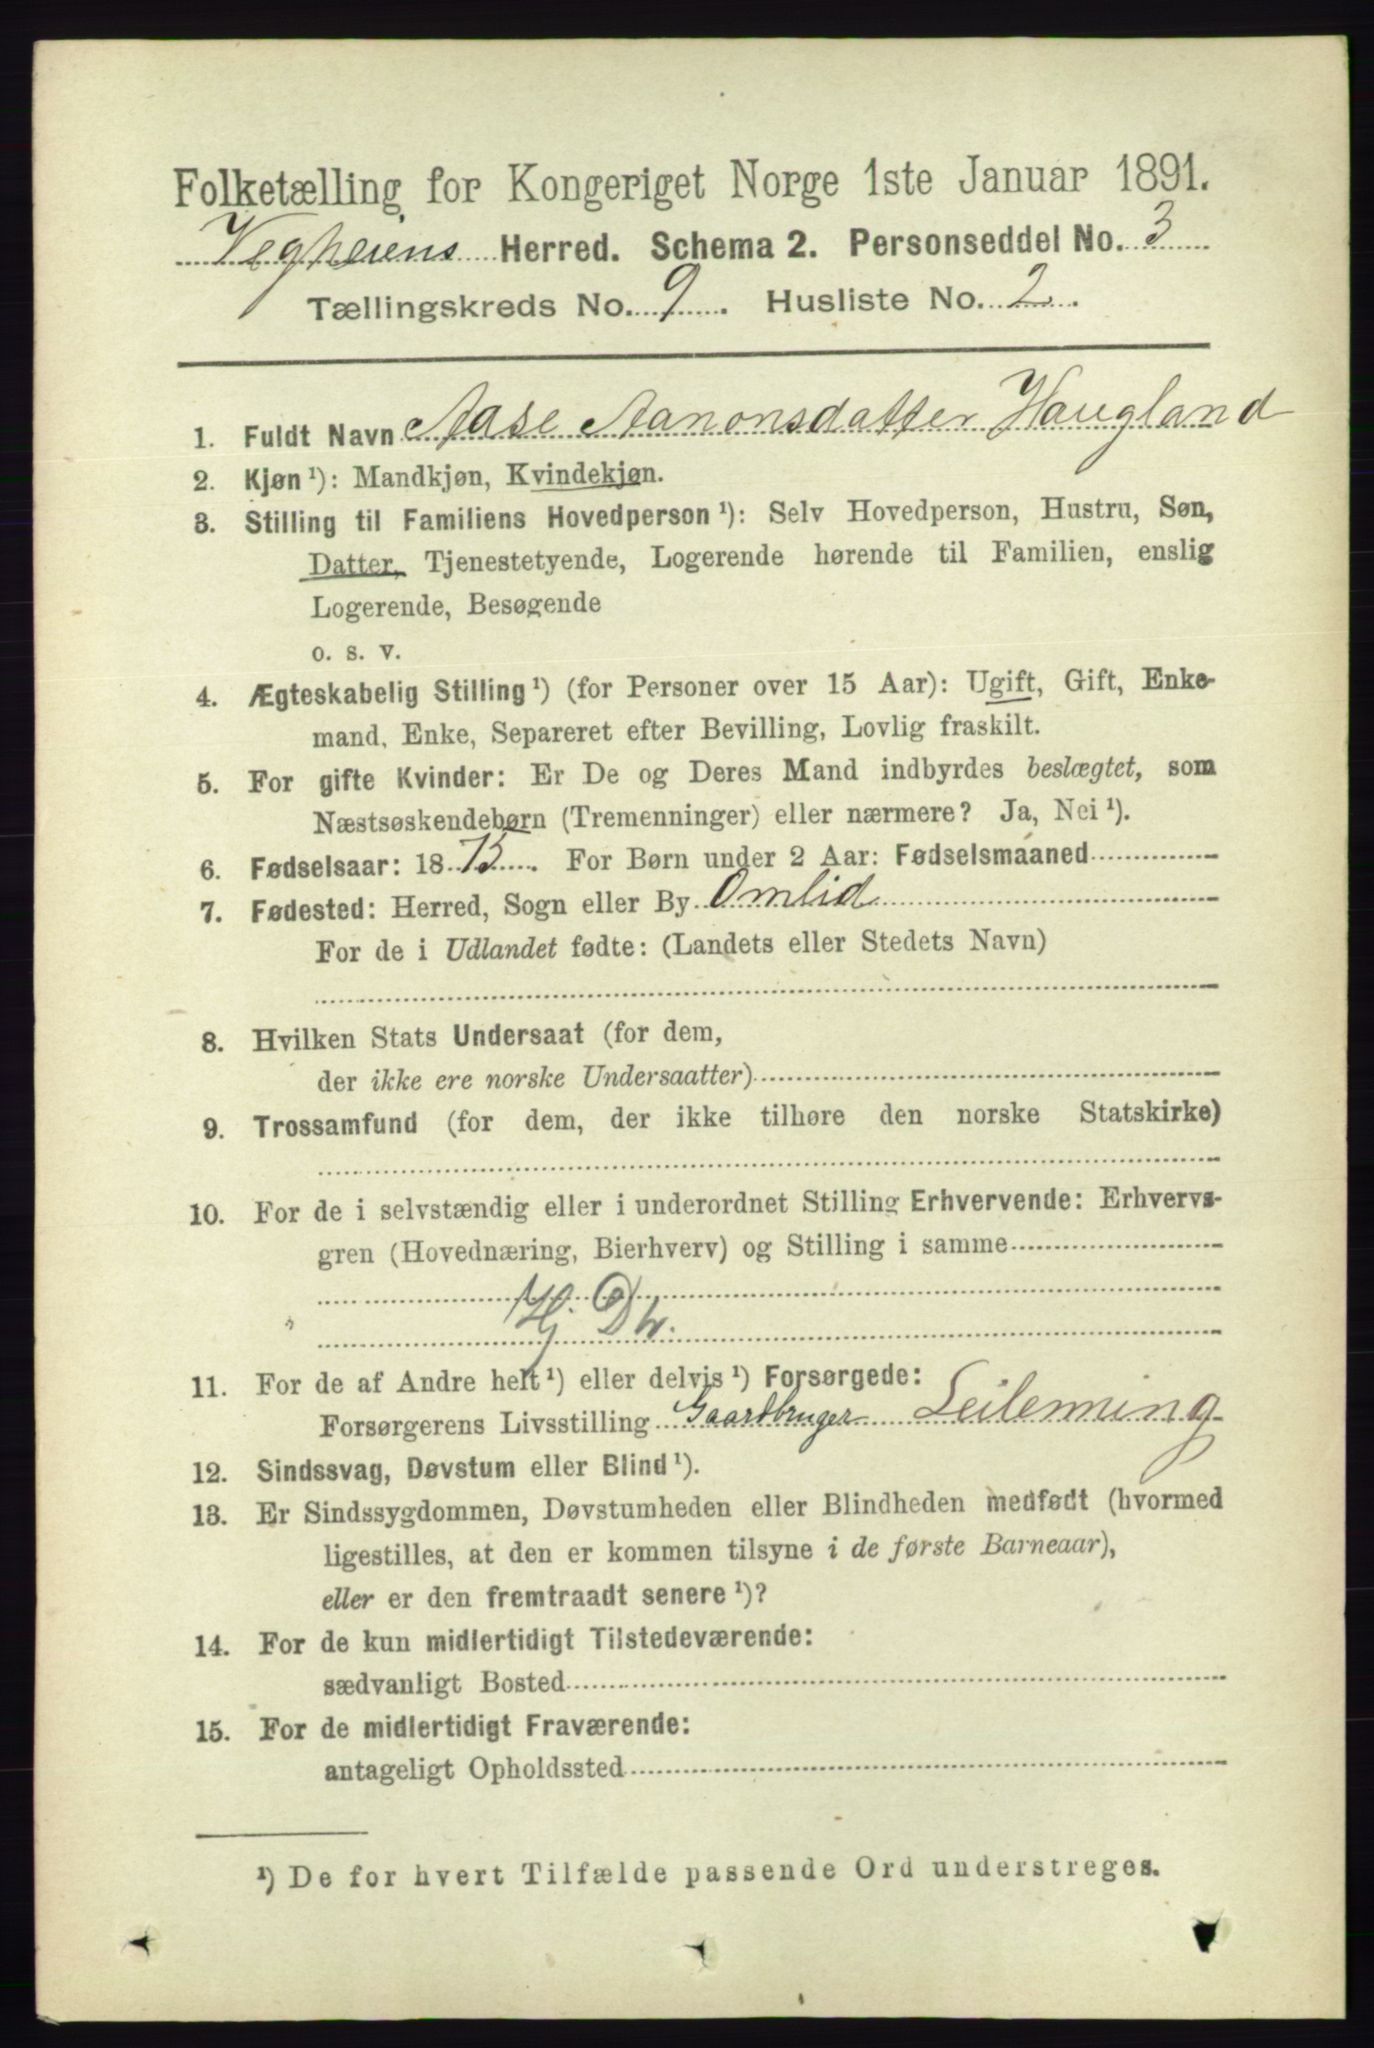 Folketælling for Kongeriget Norge 1ste Januar 1891.
Vegheiens Herred. Schema 2. Personseddel No. 3
Tællingskreds No. 9. Husliste No. 2.
1. Fuldt Navn Aase Aanonsdatter Haugland
2. Kjøn ¹): Mandkjøn, Kvindekjøn.
3. Stilling til Familiens Hovedperson ¹): Selv Hovedperson, Hustru, Søn,
Datter, Tjenestetyende, Logerende hørende til Familien, enslig
Logerende, Besøgende
o. s. v.
4. Ægteskabelig Stilling ¹) (for Personer over 15 Aar): Ugift, Gift, Enke-
mand, Enke, Separeret efter Bevilling, Lovlig fraskilt.
5. For gifte Kvinder: Er De og Deres Mand indbyrdes beslægtet, som
Næstsøskendebørn (Tremenninger) eller nærmere? Ja, Nei ¹).
6. Fødselsaar: 1873. For Børn under 2 Aar: Fødselsmaaned
7. Fødested: Herred, Sogn eller By Omlid
For de i Udlandet fødte: (Landets eller Stedets Navn)
8. Hvilken Stats Undersaat (for dem,
der ikke ere norske Undersaatter)
9. Trossamfund (for dem, der ikke tilhøre den norske Statskirke)
10. For de i selvstændig eller i underordnet Stilling Erhvervende: Erhvervs-
gren (Hovednæring, Bierhverv) og Stilling i samme
11. For de af Andre helt ¹) eller delvis ¹) Forsørgede:
Forsørgerens Livsstilling Gaardbruger Leilenning
12. Sindssvag, Døvstum eller Blind ¹).
13. Er Sindssygdommen, Døvstumheden eller Blindheden medfødt (hvormed
ligestilles, at den er kommen tilsyne i de første Barneaar),
eller er den fremtraadt senere ¹)?
14. For de kun midlertidigt Tilstedeværende:
sædvanligt Bosted
15. For de midlertidigt Fraværende:
antageligt Opholdssted
¹) De for hvert Tilfælde passende Ord understreges.